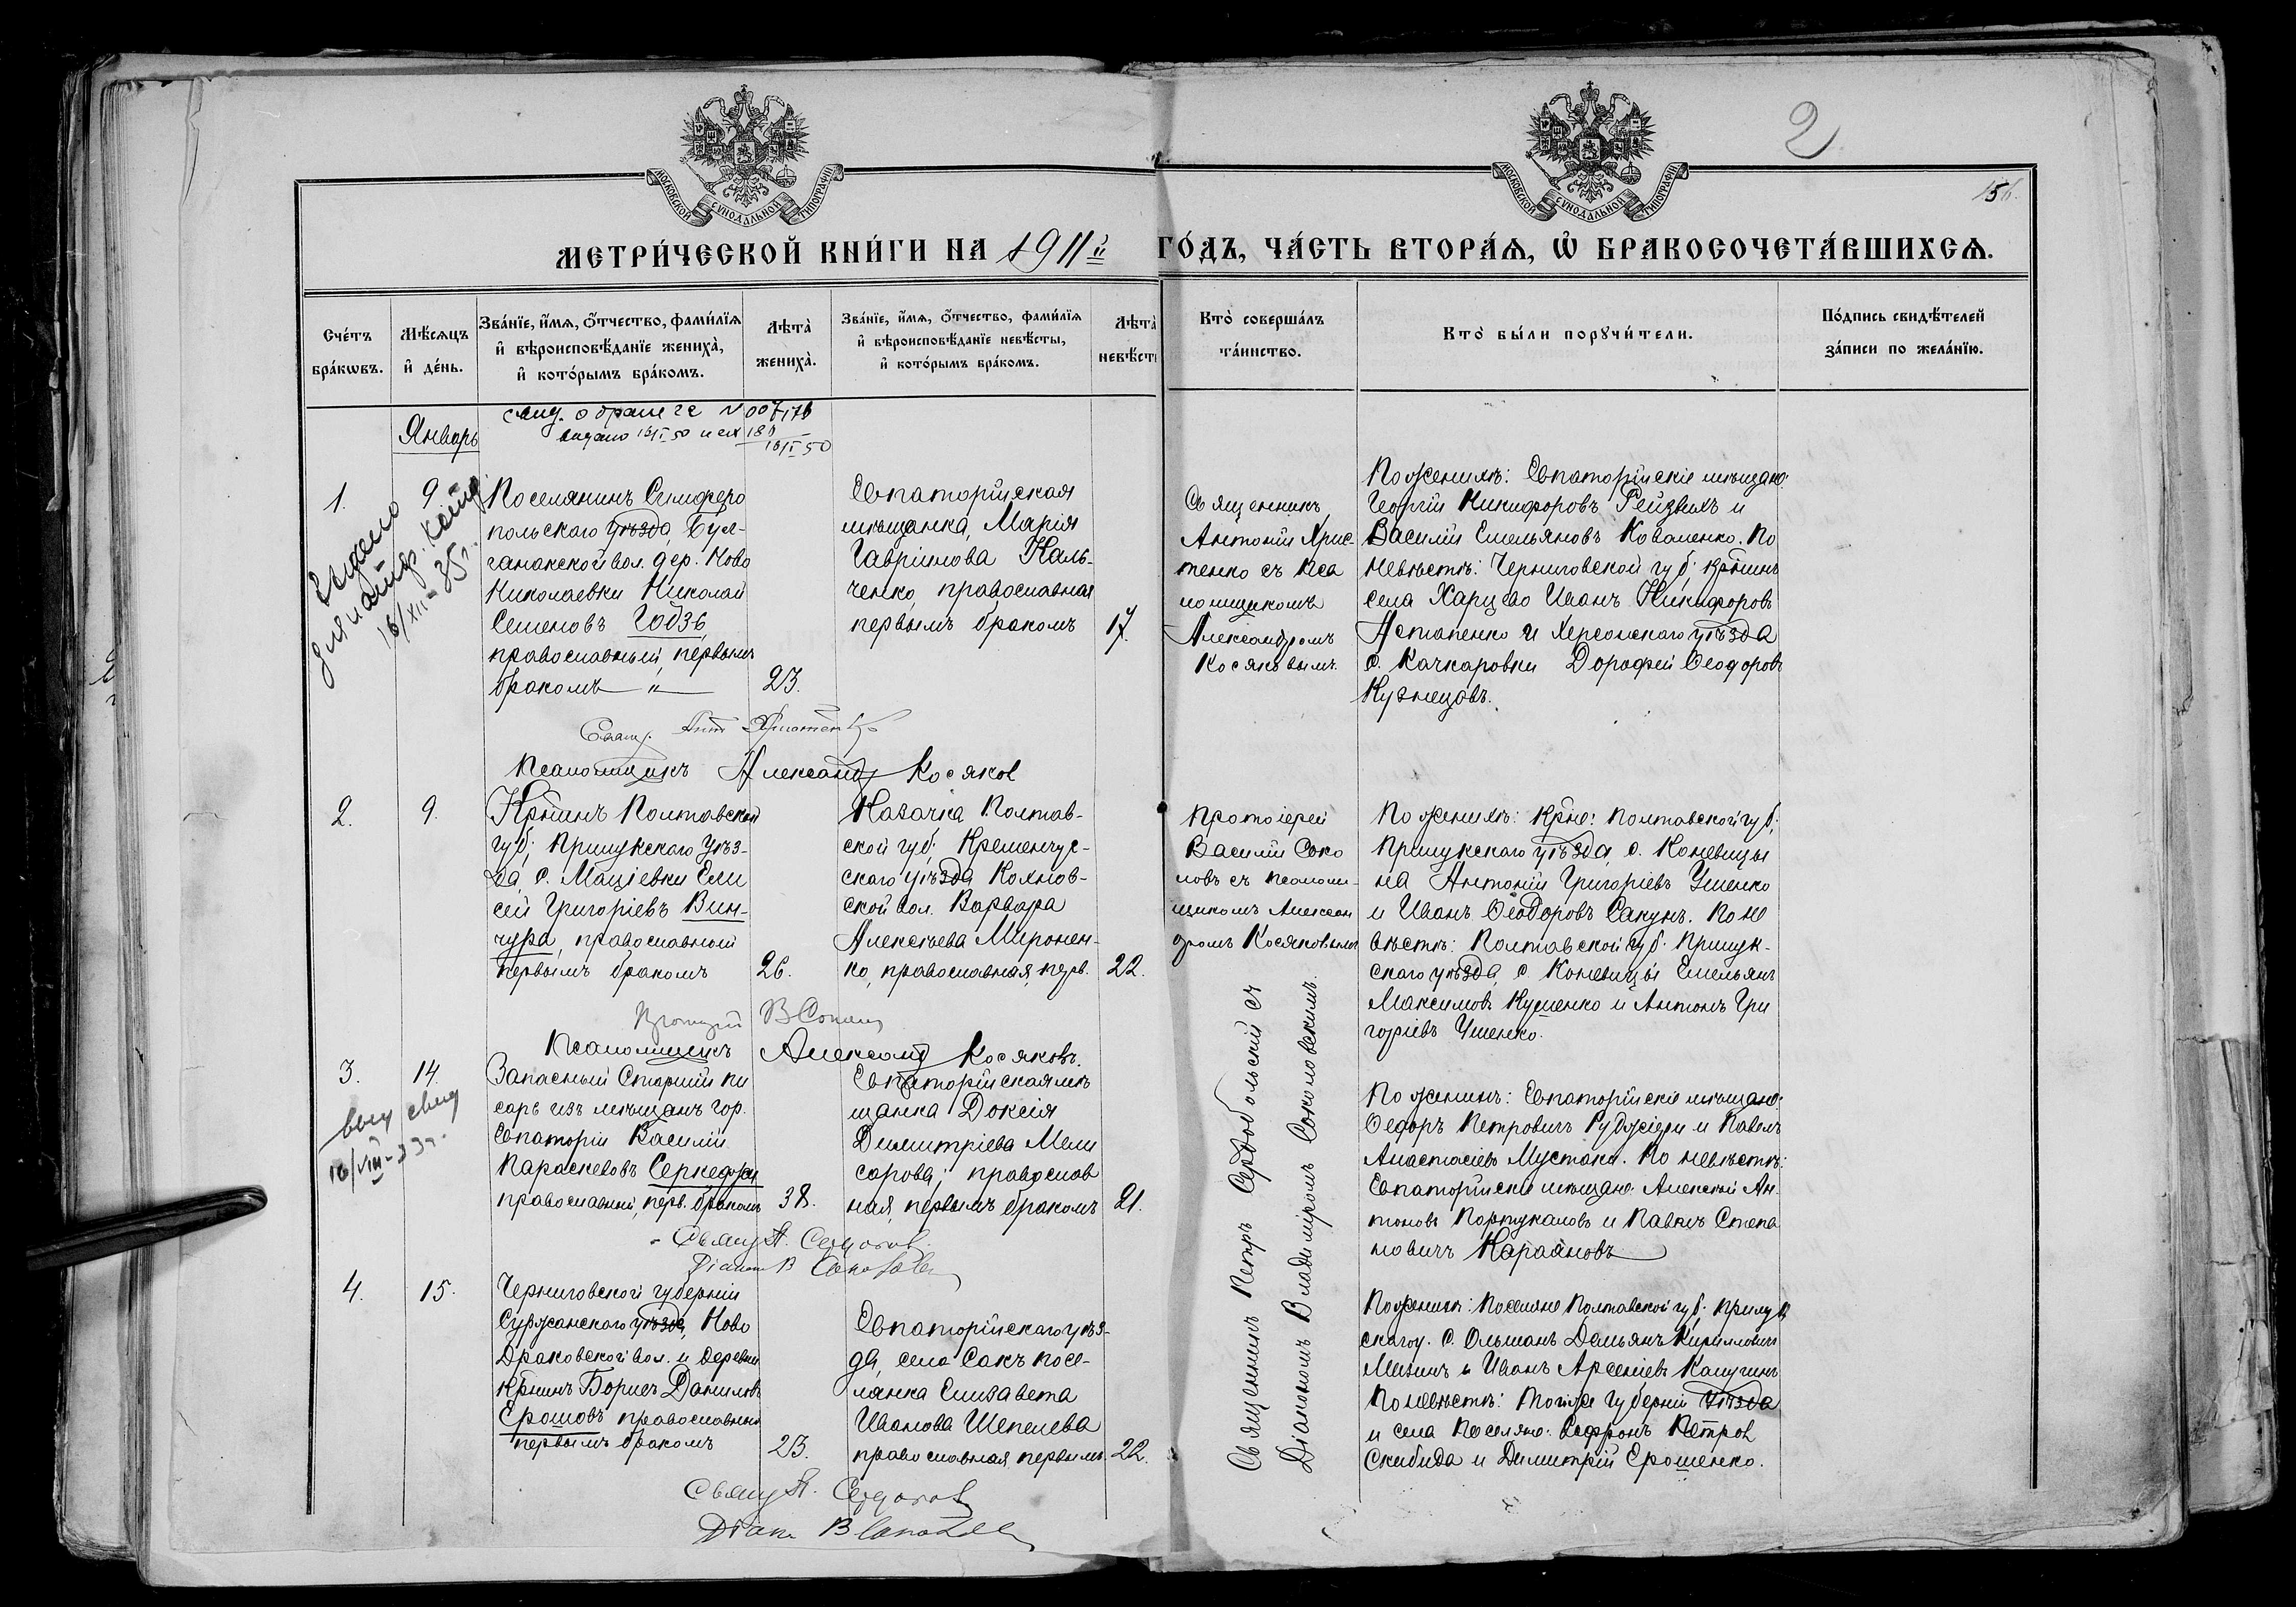 2
156.
МОСКОВСКОЙ СѴНОДАЛЬНОЙ ТИПОГРАФІИ
МОСКОВСКОЙ СѴНОДАЛЬНОЙ ТИПОГРАФІИ
МЕТРИ́ЧЕСКОЙ КНИ́ГИ НА 1911й ГО́ДЪ, ЧА́СТЬ ВТОРА́Ѧ, Ѽ БРАКОСОЧЕТА́ВШИХСѦ.
Сче́тъ бра́кѡвъ.
Мѣ́сѧцъ и҆ де́нь.
Зва́нїе, и҆́мѧ, ѻ҆́тчество, фами́лїѧ и҆ вѣроисповѣ́данїе жениха̀, и҆ кото́рымъ бра́комъ.
Лѣта̀ жениха̀.
Зва́нїе, и҆́мѧ, ѻ҆́тчество, фами́лїѧ и҆ вѣроисповѣ́данїе невѣ́сты, и҆ кото́рымъ бра́комъ.
Лѣта̀ невѣ́сты
Кто̀ соверша́лъ та́инство.
Кто̀ бы́ли порꙋчи́тели.
По́дпись свидѣ́телей за́писи по жела́нїю.
Январь
1.
9
Выдано
16/XII-35г.
Поселянинъ Симферо
польскаго уѣзда, Бул-
ганакской вол. дер. Ново
Николаевки Николай
Семеновъ
православный, первымъ
бракомъ "
23.
Евпаторійская
мѣщанка, Марія
Гавріилова Наль-
ченко, православная
первымъ бракомъ
17.
Священникъ
Антоній Хрис-
тенко съ Пса
ломщикомъ
Александромъ
Косяковымъ.
По женихѣ: Евпаторійскіе мѣщане:
Георгій Никифоровъ и
Василій Емельяновъ Коваленко. По
невѣстѣ: Черниговской губ. кр͠нинъ
села Харцево Иванъ Никифоровъ
Астапенко и Херсонскаго уѣзда
с. Качкаровки Дорофей Ѳеодоровъ
Кузнецовъ.
Псаломщикъ Александръ Косяков
2.
9.
Кр͠нинъ Полтавской
губ., Прилукскаго уѣз-
да, с. Маціевки Ели
сей Григоріевъ Вин-
чура, православный
первымъ бракомъ
26.
Казачка Полтав-
ской губ., Кременчуг-
скаго уѣзда Кохнов-
ской вол. Варвара
Алексѣева Миронен-
ко, православная, перв.
22.
Протоіерей
Василій Соко
ловъ съ псалом-
щикомъ Алексан
дромъ Косяковымъ
По женихѣ: кр͠не: Полтавской губ.,
Прилукскаго уѣзда, с. Коневицы
на Антоній Григоріевъ Ушенко
и Иванъ Ѳеодоровъ Сакунъ. По не
вѣстѣ: Полтавской губ. Прилук-
скаго уѣзда, с. Коневицы Емельянъ
Максимовъ и Антонъ Гри
горіевъ Ушенко.
Псаломщикъ Александръ Косяковъ.
3.
14.
16/VIII-33г.
Запасный Старшій пи
сарь изъ мѣщанъ гор.
Евпаторіи Василій
Параскевовъ
православный, перв. бракомъ
38.
Евпаторійская мѣ
щанка Доксія
Димитріева Мели
сарова; православ
ная, первымъ бракомъ
21.
По женихѣ: Евпаторійскіе мѣщане:
Ѳеодоръ Петровичъ и Павелъ
Анастасіевъ Мустака. По невѣстѣ:
Евпаторійскіе мѣщане: Алексѣй Ан-
тоновъ Портукаловъ и Павелъ Степа
новичъ Караяновъ
Священникъ Петръ Сердобольскій съ
Діакономъ Владиміромъ Соколовскимъ.
4.
15.
Черниговской губерніи
Суражскаго уѣзда, Ново
Драковской вол. и деревни
кр͠нинъ Борисъ Даниловъ
Ерошовъ православный
первымъ бракомъ
23.
Евпаторійскаго уѣз-
да, села Сакъ посе-
лянка Елизавета
Иванова Шепелева
православная первымъ
22.
По женихѣ: Поселяне Полтавской губ. Прилук
скаго у. с. Ольшанъ Демьянъ Кирилловичъ
и Иванъ Арсеніевъ Калугинъ
По невѣстѣ: Той же губерніи уѣзда
и села Поселяне: Софронъ Петров
Скибида и Димитрій Ерошенко.